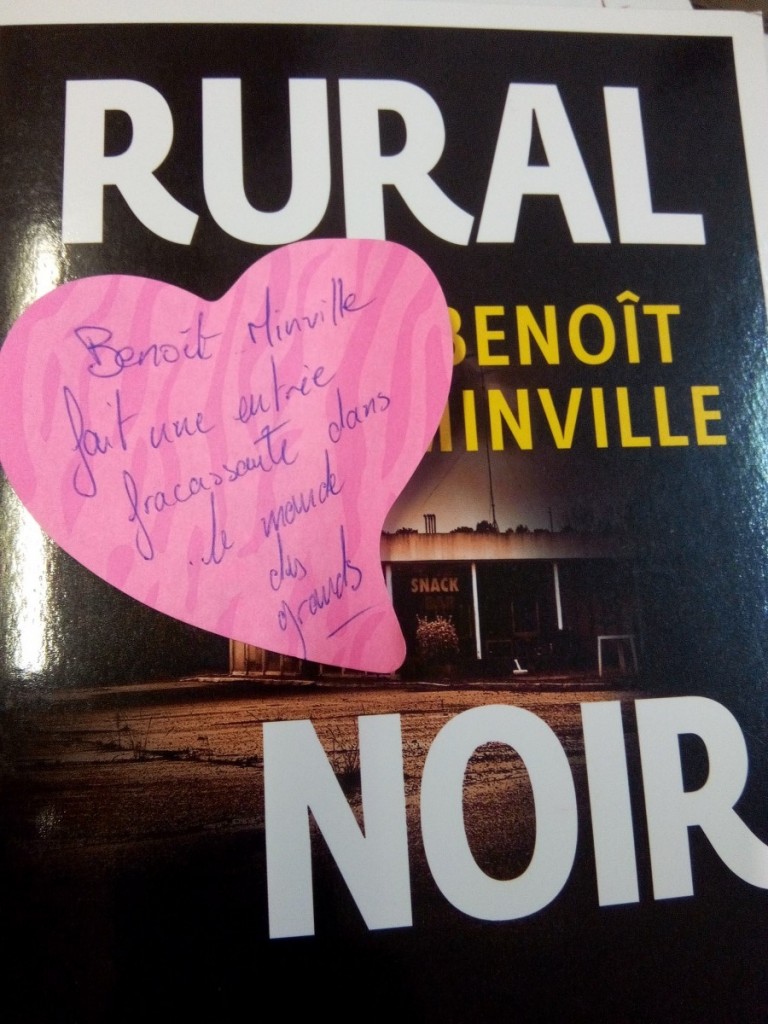 RURAL
BENOÎT
MINVILLE
Benoît Minville
fait une entrée
fracassante dans
le monde
des
grands
SNACK
BAR
NOIR